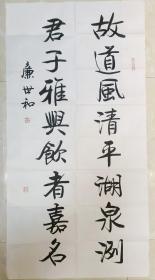 故道風清平湖泉冽
君子雅興飲者嘉名
廉世和